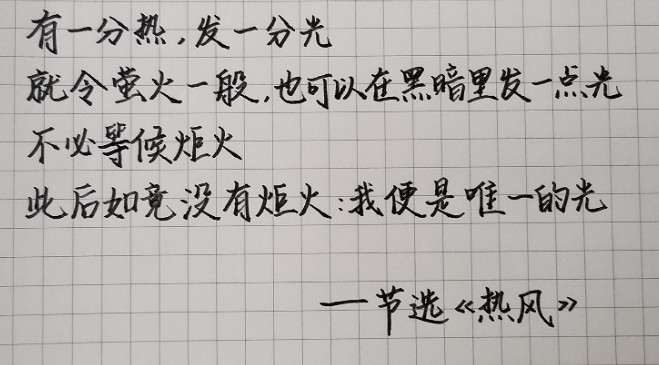 有一分热，发一分光
就令萤火一般，也可以在黑暗里发一点光
不必等候炬火
此后如竟没有炬火：我便是唯一的光
—节选《热风》